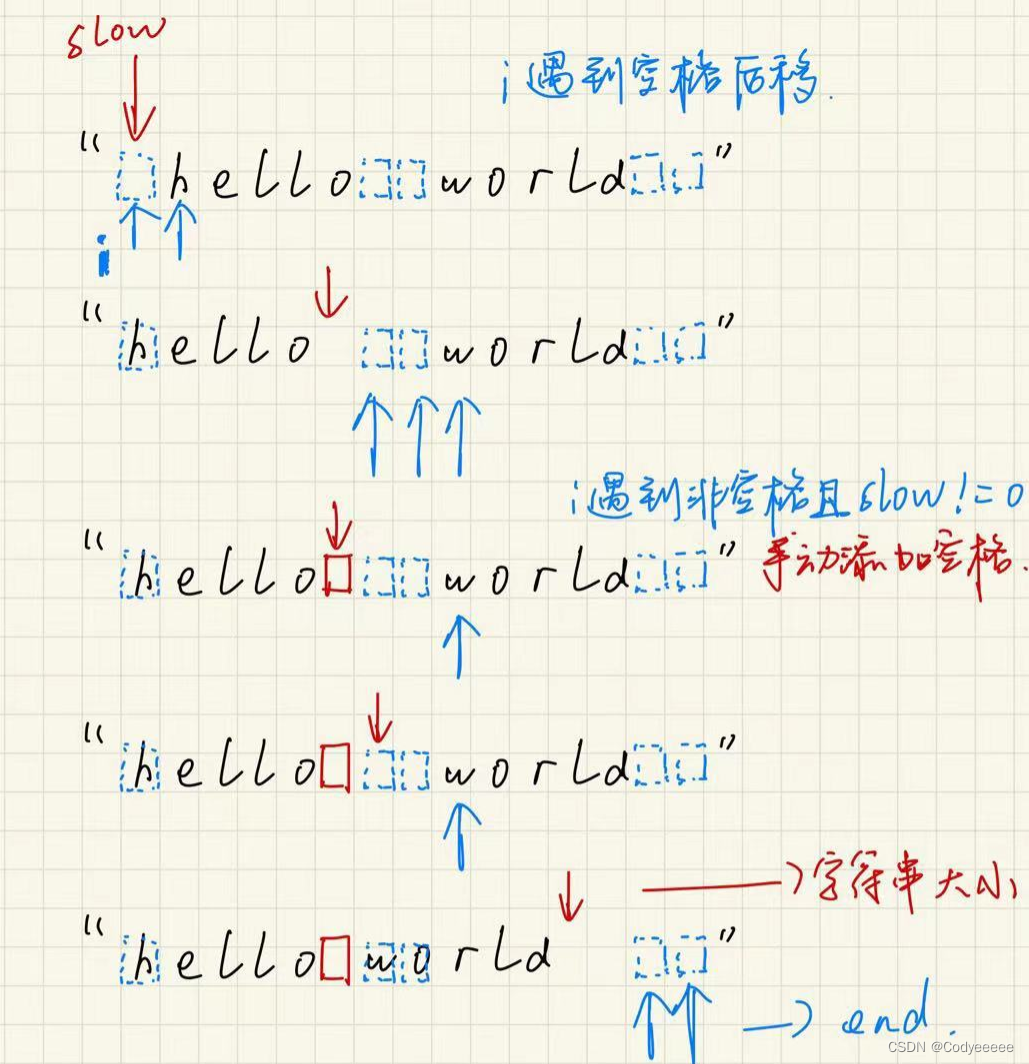 slow
i遇到空格后移.
" hello  world  "
i
"hello  world  "
i遇到非空格且slow!=0
手动添加空格.
"hello□  world  "
"hello□  world  "
→字符串大小
"hello□world  "
→ end.
CSDN @Codyeeeee